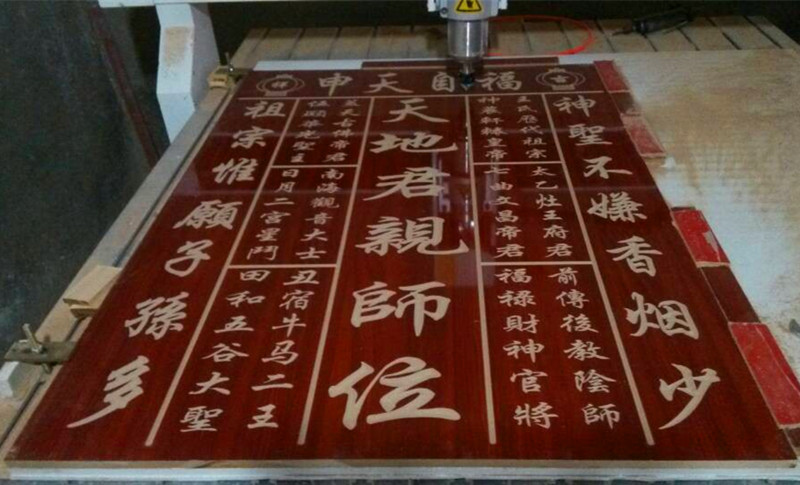 吉福自天申祥
神聖不嫌香烟少
王氏歷代祖宗
神農軒轅皇帝
太乙灶王府君
七曲文昌帝君
前傳後教陰師
福祿財神官將
天地君親師位
蓋天古佛帝君
伍顯華光聖主
南海觀音大士
日月二宮星鬥
丑宿牛马二王
田和五谷大聖
祖宗惟願子孫多